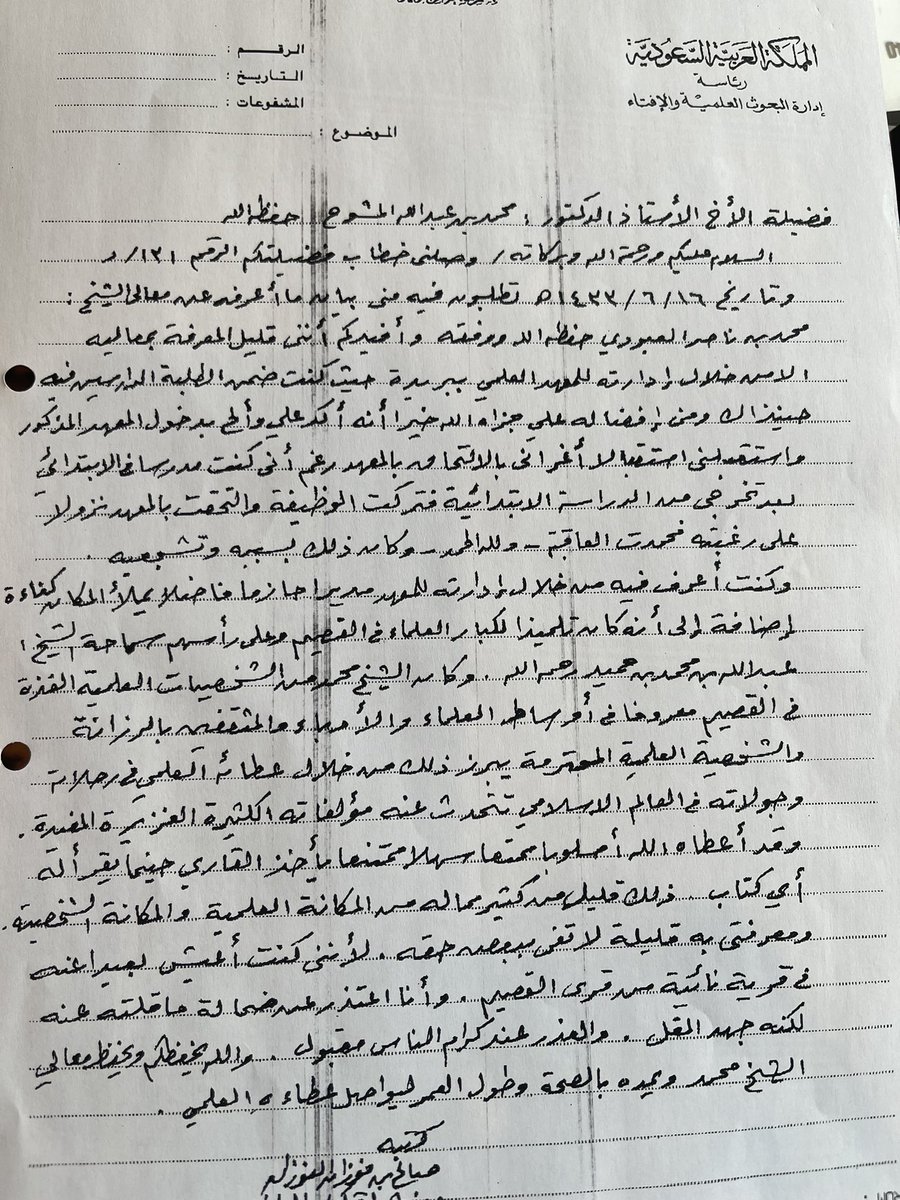 المملكة العربية السعودية
رئاسة
إدارة البحوث العلمية والإفتاء
الرقم :
التاريخ :
المشفوعات :
الموضوع :
فضيلة الأخ الأستاذ الدكتور : محمد بن عبدالله المشوح حفظه الله
السلام عليكم ورحمة الله وبركاته / وصلني خطاب فضيلتكم الرقم ١٣١/د
وتاريخ ١٤٣٣/٦/١٦هـ تطلبون فيه مني بيان ما أعرفه عن معالي الشيخ :
محمد بن ناصر العبودي حفظه الله ووفقه وأفيدكم أنني قليل المعرفة بمعاليه
الا من خلال إدارته للمعهد العلمي ببريدة حيث كنت ضمن الطلبة الدارسين فيه
حينذاك ومن إفضاله علي جزاه الله خيرا أنه أكد علي وألح بدخول المعهد المذكور
واستقبلني استقبالا أغراني بالالتحاق بالمعهد رغم أني كنت مدرسا في الابتدائي
بعد تخرجي من الدراسة الابتدائية فتركت الوظيفة والتحقت بالمعهد نزولا
على رغبته فحمدت العاقبة - ولله الحمد - وكان ذلك بسببه وتشجيعه .
وكنت أعرف فيه من خلال إدارته للمعهد مديرا حازما فاضلا يملأ المكان كفاءة
إضافة إلى أنه كان تلميذا لكبار العلماء في القصيم وعلى رأسهم سماحة الشيخ :
عبدالله بن محمد بن حميد رحمه الله . وكان الشيخ محمد من الشخصيات العلمية الفذة
في القصيم معروفا في أوساط العلماء والأدباء والمثقفين بالرزانة
والشخصية العلمية المحترمة يبرز ذلك من خلال عطائه العلمي في رحلاته
وجولاته في العالم الاسلامي تتحدث عنه مؤلفاته الكثيرة الغزيرة المفيدة .
وقد أعطاه الله أسلوبا ممتعا سهلا ممتنعا يأخذ القاري حينما يقرأ له
أي كتاب . ذلك قليل من كثير مما له من المكانة العلمية والمكانة الشخصية .
ومعرفتي به قليلة لا تفي ببعض حقه . لأنني كنت أعيش بعيدا عنه
في قرية نائية من قرى القصيم . وأنا اعتذر عن ضحالة ما قلته عنه
لكنه جهد المقل . والعذر عند كرام الناس مقبول . والله يحفظكم ويحفظ معالي
الشيخ محمد ويمده بالصحة وطول العمر ليواصل عطاءه العلمي .
كتبه
صالح بن فوزان الفوزان